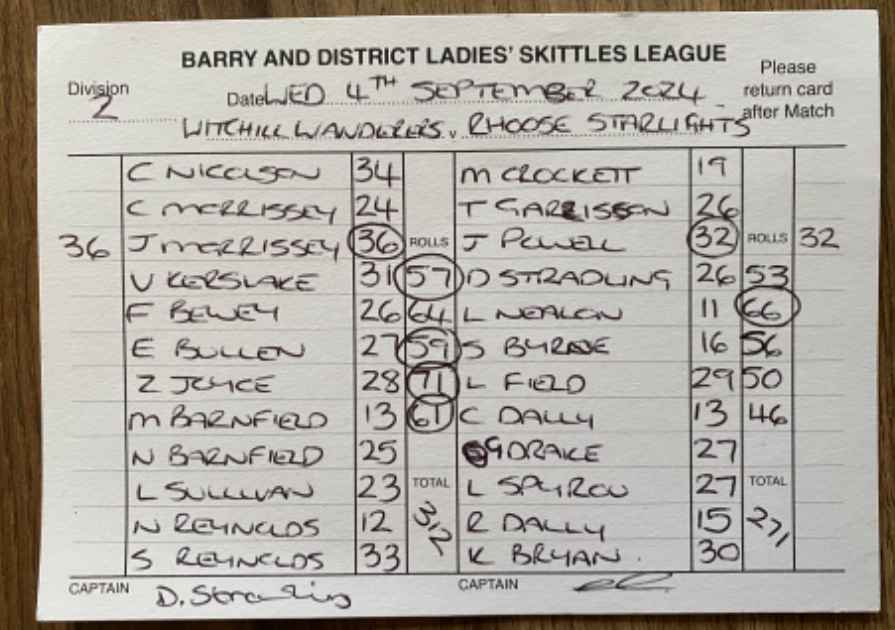 BARRY AND DISTRICT LADIES' SKITTLES LEAGUE
Please return card after Match
Division 2
Date WED 4TH SEPTEMBER 2024
WITCHILL WANDERERS v RHOOSE STARLIGHTS
C NICOLSON 34 M CROCKETT 19
C MORRISSEY 24 T GARRISSON 26
36 J MORRISSEY 36 ROLLS J POWELL 32 ROLLS 32
V KERSLAKE 31 57 D STRADLING 26 53
F BEWEY 26 64 L NEALON 11 66
E BULLEN 27 59 S BYRNE 16 56
Z JOYCE 28 71 L FIELD 29 50
M BARNFIELD 13 61 C DALLY 13 46
N BARNFIELD 25 G DRAKE 27
L SULLIVAN 23 TOTAL L SPYROU 27 TOTAL
N REYNOLDS 12 312 R DALLY 15 271
S REYNOLDS 33 K BRYAN. 30
CAPTAIN D. Stradling CAPTAIN